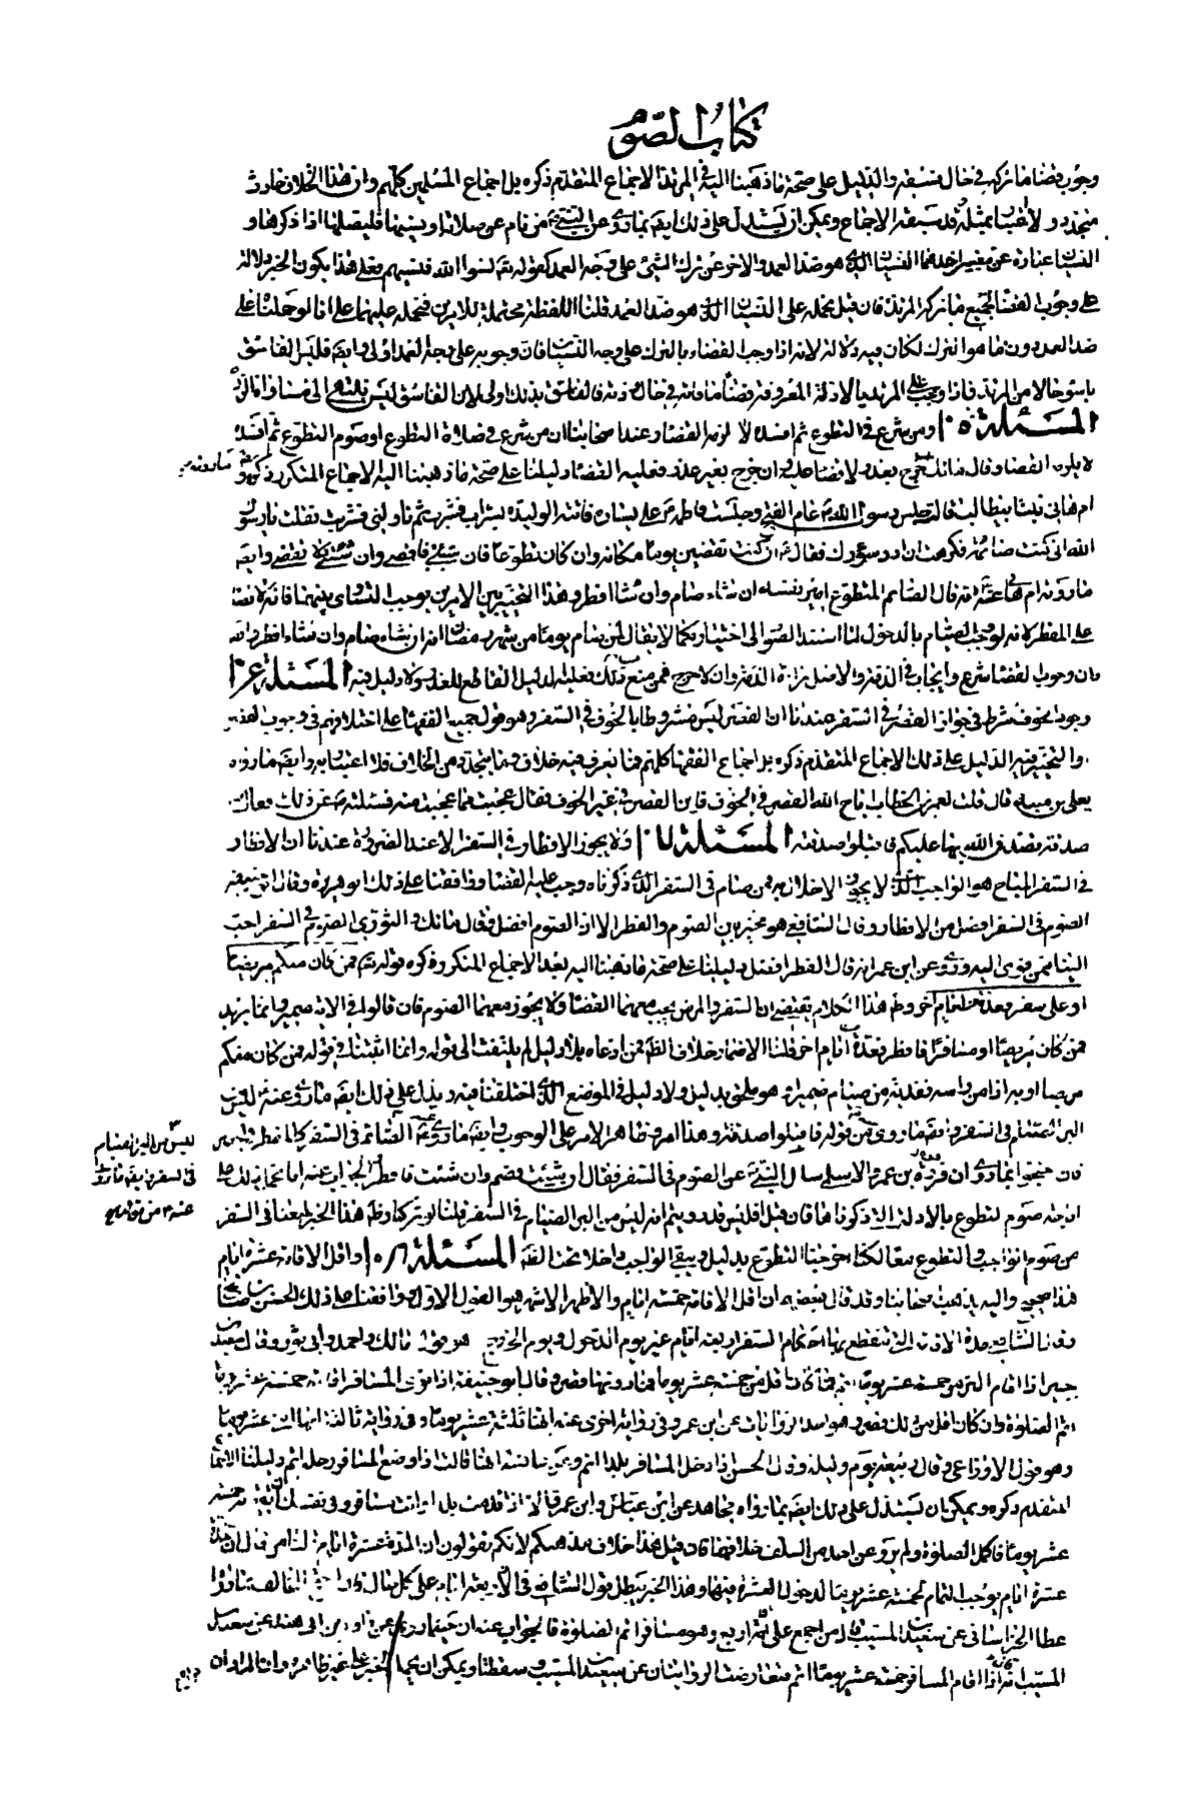 كتاب الصوم
وجوب قضا ما تركه في حال فسقه والدليل على صحة ما ذهبنا اليه في المرتد الاجماع المتقدم ذكره بل اجماع المسلمين كلهم وان هذا الخلاف حادث
متجدد ولا اعتبار بمثله قد سبقه الاجماع ويمكن ان يستدل على ذلك ايضا بما روي عن النبي من نام عن صلاة او نسيها فليصلها اذا ذكرها و
النسيان عبارة عن معنيين احدهما النسيان الذي هو ضد العمد والاخر عن ترك الشيء على وجه العمد كقوله تعالى نسوا الله فنسيهم فعلى هذا يكون الخبر دلالة
على وجوب القضا لجميع ما تركه المرتد فان قيل نحمله على النسيان الذي هو ضد العمد قلنا اللفظة محتملة للامرين فنحمله عليهما على انا لو حملناه على
ضد العمد دون ما هو الترك لكان فيه دلالة لانه اذا وجب القضاء بالترك على وجه النسيان فان وجوبه على وجه العمد اولى وايضا فليس الفاسق
باسوء حالا من المرتد فاذا وجب على المرتد بالادلة المعروفة قضا ما فاته في حال ردته فالفاسق بذلك اولى لان الفاسق ليس ينتهي الى مساواة المرتد
المسئلة ومن شرع في التطوع ثم افسده لا لزمه القضاء وعند اصحابنا ان من شرع في صلاة التطوع او صوم التطوع ثم افسده
لا يلزمه القضاء وقال مالك ان خرج بعذر لا قضا عليه وان خرج بغير عذر فعليه القضاء دليلنا على صحة ما ذهبنا اليه الاجماع المتكرر ذكره و
ام هاني بنت ابي طالب قالت جلس رسول الله عام الفتح وجلست فاطمة على يساره فاتته الوليدة بشراب فشرب ثم ناولني فشربت فقلت يا رسول
الله اني كنت صائمة فكرهت ان ارد سورك فقال ان كنت تقضين يوما مكانه وان كان تطوعا فان شئت فاقضيه وان شئت لا تقضيه وايضا
ما روته ام هاني عنه انه قال الصائم المتطوع امير نفسه ان شاء صام وان شاء افطر وهذا التخيير بين الامرين يوجب التساوي بينهما فانه لا قضا
على المفطر لانه لو وجب الصيام بالدخول لما استند الصوم الى اختياره كما لا يقال لمن صام يوما من شهر رمضان انه ان شاء صام وان شاء افطر وايضا
فان وجوب القضا شرع وايجاب في الذمة والاصل براءة الذمة وان لا حرج فمن منع ذلك فعليه الدليل القاطع للعذر ولا دليل فيه المسئلة
وجود الخوف شرط في جواز القصر في السفر عندنا ان القصر ليس مشروطا بالخوف في السفر وهو قول جميع الفقها على اختلافهم في وجوب القصر
والتخيير فيه الدليل على ذلك الاجماع المتقدم ذكره بل اجماع الفقها كلهم فما نعرف فيه خلاف وما يتجدد من الخلاف فلا اعتبار به وايضا ما رواه
يعلى بن منية قال قلت لعمر بن الخطاب اباح الله القصر في الخوف فاين القصر في غير الخوف فقال عجبت مما عجبت منه فسئلته عن ذلك فقال
صدقة تصدق الله بها عليكم فاقبلوا صدقته المسئلة ولا يجوز الافطار في السفر الا عند الضرورة عندنا ان الافطار
في السفر المباح هو الواجب الذي لا يجوز الاخلال به فمن صام في السفر الذي ذكرناه وجب عليه القضا ووافقنا على ذلك ابو هريرة وقال ابو حنيفة
الصوم في السفر افضل من الافطار وقال الشافعي هو مخير بين الصوم والفطر الا ان الصوم افضل وقال مالك والثوري الصوم في السفر احب
الينا لمن قوي اليه وروي عن ابن عمر انه قال الفطر افضل دليلنا على صحة ما ذهبنا اليه بعد الاجماع المتكرر ذكره قوله تعالى فمن كان منكم مريضا
او على سفر فعدة من ايام اخر وظاهر هذا الكلام يقتضي ان السفر والمرض يجب معهما القضا ولا يجوز معهما الصوم فان قالوا في الاية ضمير وانما يريد
فمن كان مريضا او مسافرا فافطر فعدة من ايام اخر قلنا الاضمار خلاف الظاهر فمن ادعاه بلا دليل لم يلتفت الى قوله وانما اثبتناه في قوله فمن كان منكم
مريضا او به اذى من راسه ففدية من صيام ضميرا هو ملحق بدليل ولا دليل في الموضع الذي اختلفنا فيه ويدل على ذلك ايضا ما روي عنه ليس
البر الصيام في السفر وايضا ما روي من قوله فاقبلوا صدقته وهذا امر وظاهر الامر على الوجوب وايضا ما روي عنه الصائم في السفر كالمفطر في الحضر
فان احتجوا بما روي ان فردة بن عمرو الاسلمي سال النبي عن الصوم في السفر فقال ان شئت فصم وان شئت فافطر فالجواب عنه انا نحمل ذلك على
ان به صوم التطوع بالادلة التي ذكرناها فان قيل افليس قد رويتم انه ليس من البر الصيام في السفر قلنا لو تركنا وظاهر هذا الخبر لمعنا في السفر
من صوم الواجب والتطوع معا لكنا اخرجنا التطوع بدليل ويبقى الواجب داخلا تحت الظاهر المسئلة واقل الاقامة عشرة ايام
هذا صحيح واليه يذهب اصحابنا وقد قال بعضهم ان اقل الاقامة خمسة ايام والاظهر الاشهر هو القول الاول ووافقنا على ذلك الحسن بن صالح
وقال الشافعي مدة الاقامة التي تنقطع بها احكام السفر اربعة ايام غير يوم الدخول ويوم الخروج وهو قول مالك واحمد وابي ثور وقال سعيد بن
جبير اذا اقام اكثر من خمسة عشر يوما اتم وان كان اقل من خمسة عشر يوما فما دونها قصر وقال ابو حنيفة اذا نوى المسافر اقامة خمسة عشر يوما
اتم الصلوة وان كان اقل من ذلك قصر وهو احد الروايات عن ابن عمر وفي رواية اخرى عنه انها ثلثة عشر يوما وفي رواية ثالثة انها اثنا عشر يوما
وهو قول الاوزاعي وقال ربيعة يوم وليلة وقال الحسن اذا دخل المسافر بلدا اتم وعن عائشة انها قالت اذا وضع المسافر رحله اتم دليلنا الاجماع
المتقدم ذكره ويمكن ان يستدل على ذلك ايضا بما رواه مجاهد عن ابن عباس وابن عمر قالا اذا قدمت بلدا وانت مسافر وفي نفسك ان تقيم خمسة
عشر يوما فاكمل الصلوة ولم يرو عن احد من السلف خلافهما فان قيل هذا خلاف مذهبكم لانكم تقولون ان المدة عشرة ايام قلنا من قال ان مدة
عشرة ايام يوجب التمام لخمسة عشر يوما لدخول العشرة فيها وهذا الخبر يبطل قول الشافعي في الاربعة ايام على كل حال فان احتج المخالف بما رواه
عطا الخراساني عن سعيد بن المسيب قال من اجمع على اقامة اربع وهو مسافر اتم الصلوة فالجواب عنه ان هشيما روى عن داود بن ابي هند عن سعيد بن
المسيب انه قال اذا اقام المسافر خمسة عشر يوما اتم فتعارضت الروايتان عن سعيد بن المسيب وسقطتا ويمكن ان يحمل الخبر على غير ظاهره وان المراد ان
ليس من البر الصيام
في السفر وايضا ما روي
عنه من قوله